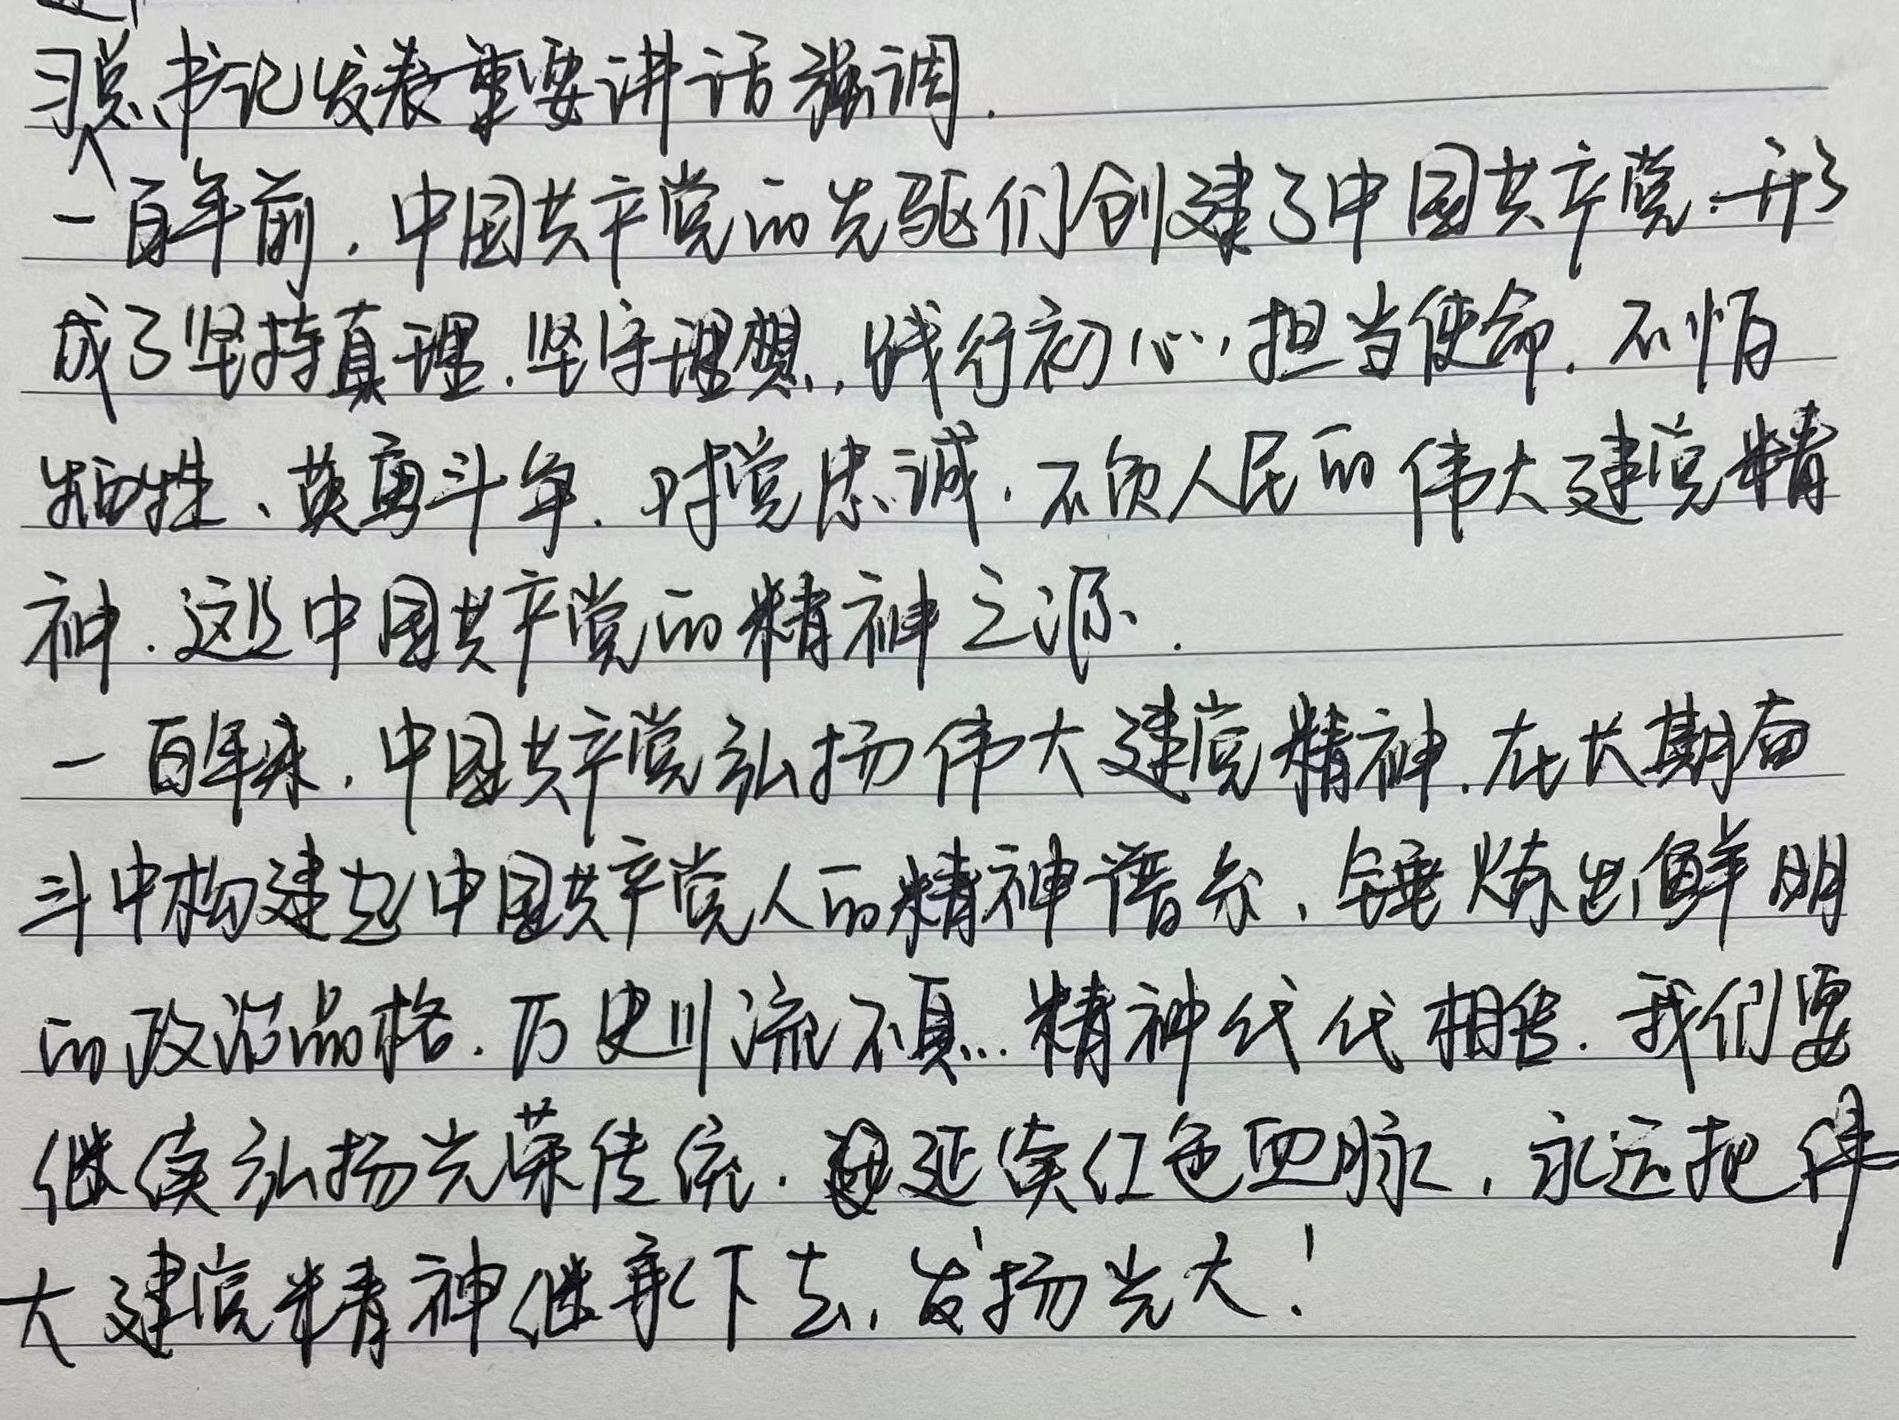 习总书记发表重要讲话强调.
一百年前,中国共产党的先驱们创建了中国共产党.形
成了坚持真理.坚守理想,践行初心,担当使命.不怕
牺牲、英勇斗争.对党忠诚.不负人民的伟大建党精
神.这是中国共产党的精神之源.
一百年来,中国共产党弘扬伟大建党精神.在长期奋
斗中构建起中国共产党人的精神谱系,锤炼出鲜明
的政治品格.历史川流不息.精神代代相传.我们要
继续弘扬光荣传统.延续红色血脉,永远把伟
大建党精神继承下去,发扬光大!